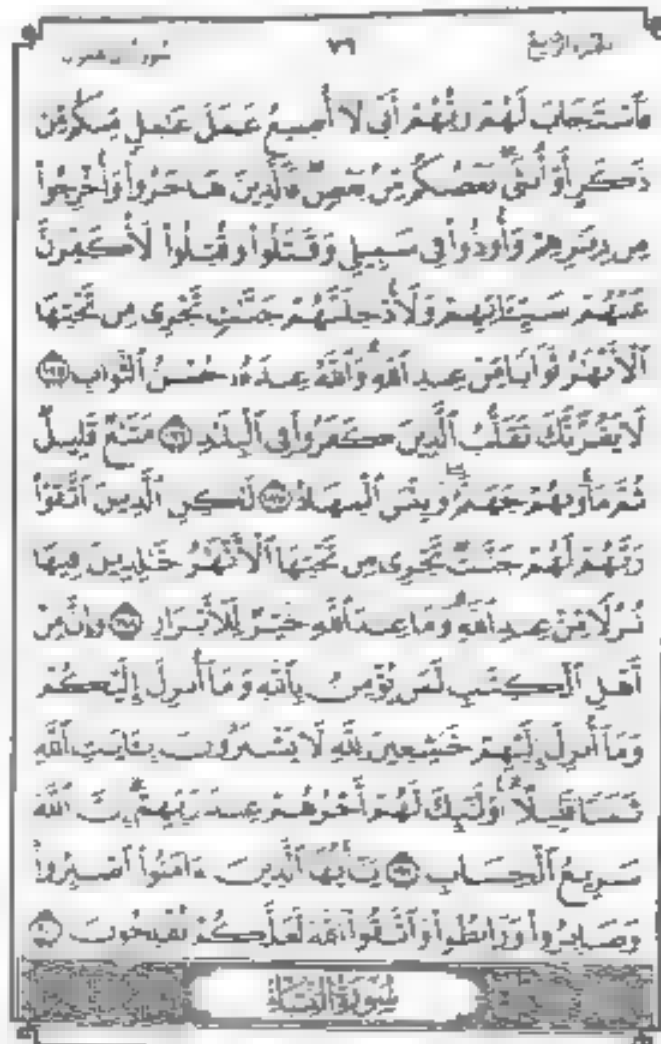 الجزء الرابع ٧٦ سورة آل عمران
فَٱسْتَجَابَ لَهُمْ رَبُّهُمْ أَنِّى لَآ أُضِيعُ عَمَلَ عَـٰمِلٍ مِّنكُم مِّن
ذَكَرٍ أَوْ أُنثَىٰ ۖ بَعْضُكُم مِّنۢ بَعْضٍ ۖ فَٱلَّذِينَ هَاجَرُوا۟ وَأُخْرِجُوا۟
مِن دِيَـٰرِهِمْ وَأُوذُوا۟ فِى سَبِيلِى وَقَـٰتَلُوا۟ وَقُتِلُوا۟ لَأُكَفِّرَنَّ
عَنْهُمْ سَيِّـَٔاتِهِمْ وَلَأُدْخِلَنَّهُمْ جَنَّـٰتٍ تَجْرِى مِن تَحْتِهَا
ٱلْأَنْهَـٰرُ ثَوَابًا مِّنْ عِندِ ٱللَّهِ ۗ وَٱللَّهُ عِندَهُۥ حُسْنُ ٱلثَّوَابِ ١٩٥
لَا يَغُرَّنَّكَ تَقَلُّبُ ٱلَّذِينَ كَفَرُوا۟ فِى ٱلْبِلَـٰدِ ١٩٦ مَتَـٰعٌ قَلِيلٌ
ثُمَّ مَأْوَىٰهُمْ جَهَنَّمُ ۚ وَبِئْسَ ٱلْمِهَادُ ١٩٧ لَـٰكِنِ ٱلَّذِينَ ٱتَّقَوْا۟
رَبَّهُمْ لَهُمْ جَنَّـٰتٌ تَجْرِى مِن تَحْتِهَا ٱلْأَنْهَـٰرُ خَـٰلِدِينَ فِيهَا
نُزُلًا مِّنْ عِندِ ٱللَّهِ ۗ وَمَا عِندَ ٱللَّهِ خَيْرٌ لِّلْأَبْرَارِ ١٩٨ وَإِنَّ مِنْ
أَهْلِ ٱلْكِتَـٰبِ لَمَن يُؤْمِنُ بِٱللَّهِ وَمَآ أُنزِلَ إِلَيْكُمْ
وَمَآ أُنزِلَ إِلَيْهِمْ خَـٰشِعِينَ لِلَّهِ لَا يَشْتَرُونَ بِـَٔايَـٰتِ ٱللَّهِ
ثَمَنًا قَلِيلًا ۗ أُو۟لَـٰٓئِكَ لَهُمْ أَجْرُهُمْ عِندَ رَبِّهِمْ ۗ إِنَّ ٱللَّهَ
سَرِيعُ ٱلْحِسَابِ ١٩٩ يَـٰٓأَيُّهَا ٱلَّذِينَ ءَامَنُوا۟ ٱصْبِرُوا۟
وَصَابِرُوا۟ وَرَابِطُوا۟ وَٱتَّقُوا۟ ٱللَّهَ لَعَلَّكُمْ تُفْلِحُونَ ٢٠٠
سُورَةُ النِّسَاءِ